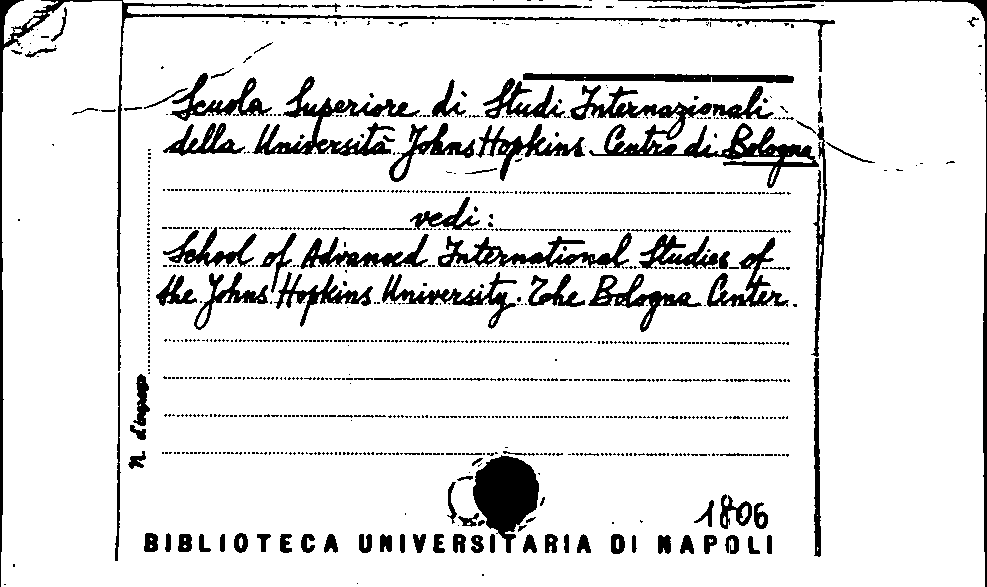 Scuola Superiore di Studi Internazionali
della Università Johns Hopkins. Centro di Bologna
vedi:
School of Advanced International Studies of
the Johns Hopkins University. The Bologna Center.
N. d'ingresso
1806
BIBLIOTECA UNIVERSITARIA DI NAPOLI